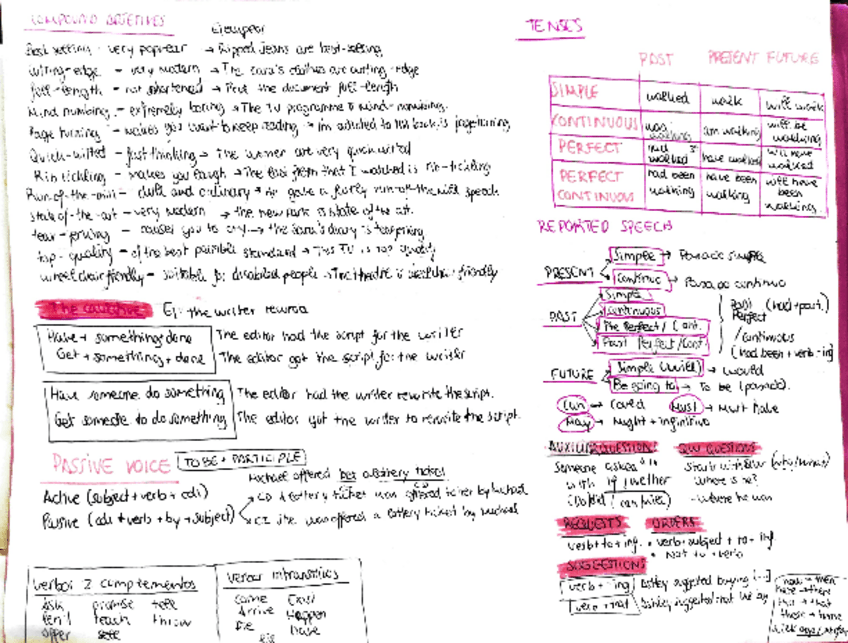 COMPOUND ADJETIVES
Best selling - very popular → Ripped Jeans are best-selling
cutting-edge - very modern → The Zara's clothes are cutting-edge
full-length - not shortened → the document full-length
Mind numbing - extremely boring → The TV programme is mind-numbing.
Page turning - makes you want to keep reading → I'm addicted to this book, is pageturning
Quick-witted - fast thinking → The winner are very quick witted
Rib tickling - makes you laugh → The last film that I watched is rib-tickling
Run-of-the-mill - dull and → He gave a run-of-the-mill speech
State-of-the-art - very modern → the new is state of the art.
tear-jerking - causes you to cry → the Sara's diary is tearjerking
top-quality - of the best possible standard → This TV is top quality
wheelchair friendly - suitable for disabled people → The theatre is wheelchair-friendly
The causative Ej: the writer
Have + something + done The editor had the script for the writer
Get + something + done The editor got the script for the writer
Have someone do something The editor had the writer rewrite the script.
Get someone to do something The editor got the writer to rewrite the script.
PASSIVE VOICE TO BE + PARTICIPLE
Michael offered a lottery ticket
Active (subject + verb + cdi)
CD A lottery ticket was offered to her by Michael
Passive (cdi + verb + by + subject)
CI She was offered a lottery ticket by Michael
verbos 2 complementos
ask promise tell
teach throw
offer
verbos intransitivos
Come Exist
Arrive Happen
Die
TENSES
PAST PRESENT FUTURE
SIMPLE walked walk will walk
CONTINUOUS was walking am walking will be walking
PERFECT had walked have walked will have walked
PERFECT CONTINUOUS had been walking have been walking will have been walking
REPORTED SPEECH
PRESENT
Simple → Pasado simple
Continuo → Pasado continuo
PAST
Simple
Continuous
Pre Perfect / Cont.
Past Perfect / Cont
Past Perfect (had + part.)
/ continuous
(had been + verb-ing)
FUTURE
Simple (will) → would
Be going to → To be (pasado).
Can → Could Must → Must have
May → Might + infinitivo
QUESTIONS QW QUESTIONS
Someone asked
with if / wether
Start with QW (who/what)
Where is he?
- Where he was
REQUESTS ORDERS
verb + to + inf. • verb + subject + to + inf
• Not to + verb
SUGGESTIONS
verb + ing Ashley suggested buying [...]
verb + that Ashley suggested that we
now → then
here → there
this → that
these → those